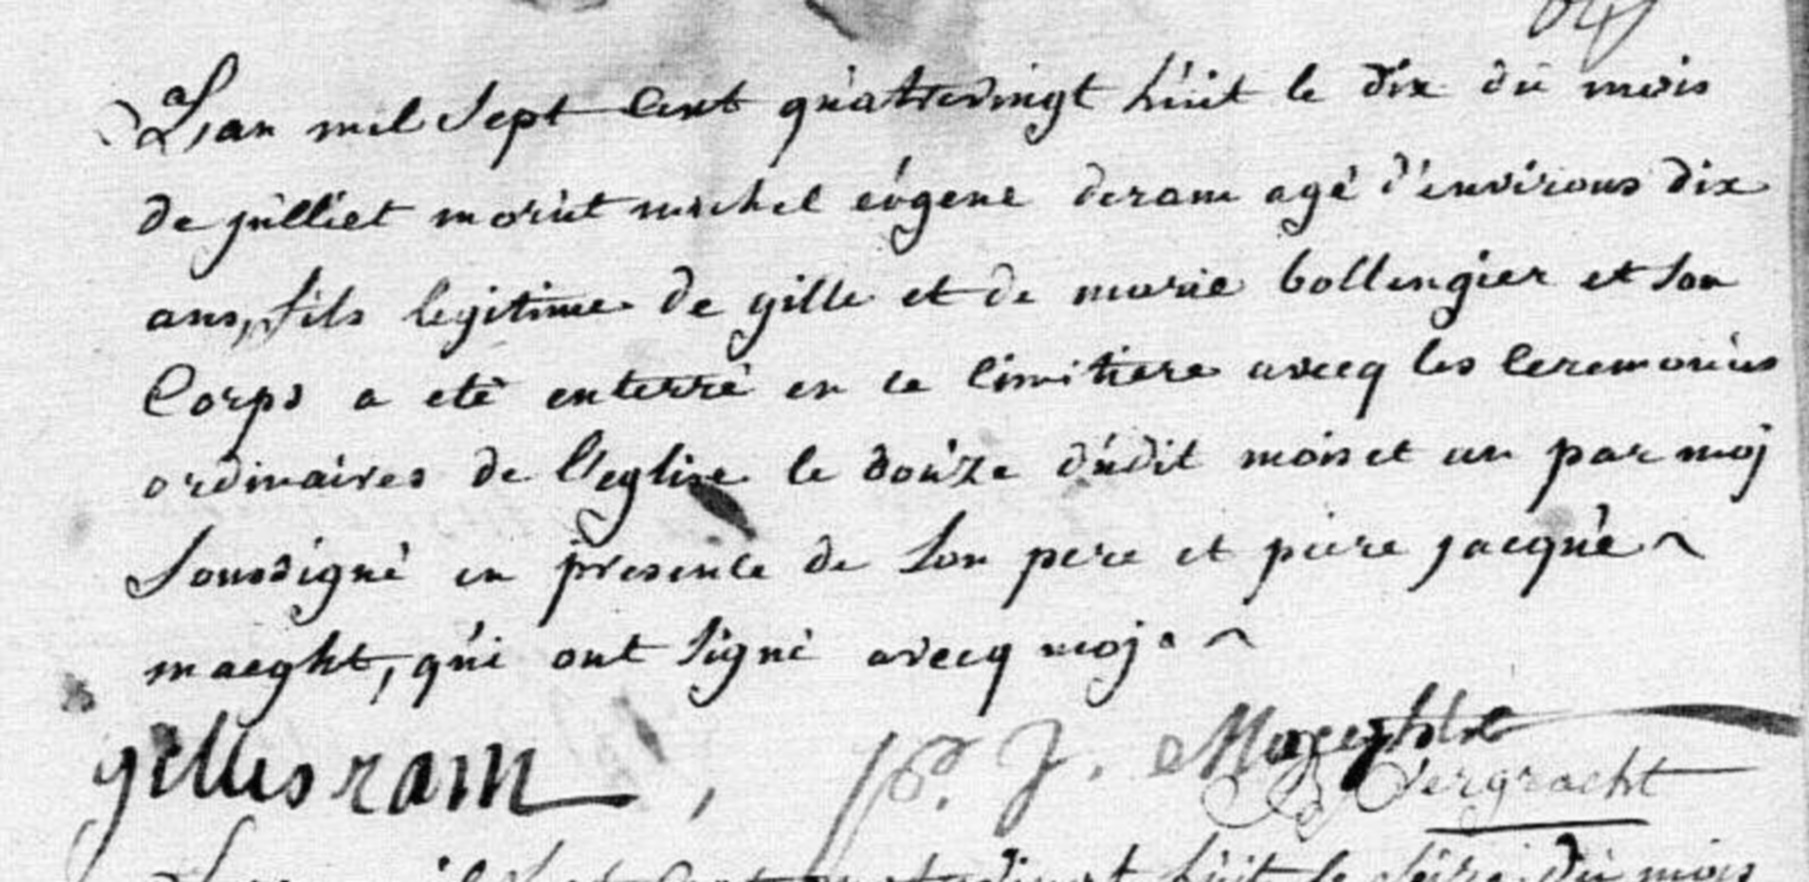 L'an mil sept cent quatrevingt huit le dix du mois
de julliet morut michel eúgene deram agé d'environs dix
ans, fils legitime de gille et de marie bollengier et son
Corps a eté enterré en ce cimitiere avecq les ceremonies
ordinaires de l'eglise le douze dudit mois et an par moj
soussigné en presence de son pere et piere jacque
maeght, qui ont signé avecq moj.
gilles ram, P. J. Maeght
Vergracht
L'an mil sept cent quatrevingt huit le du mois